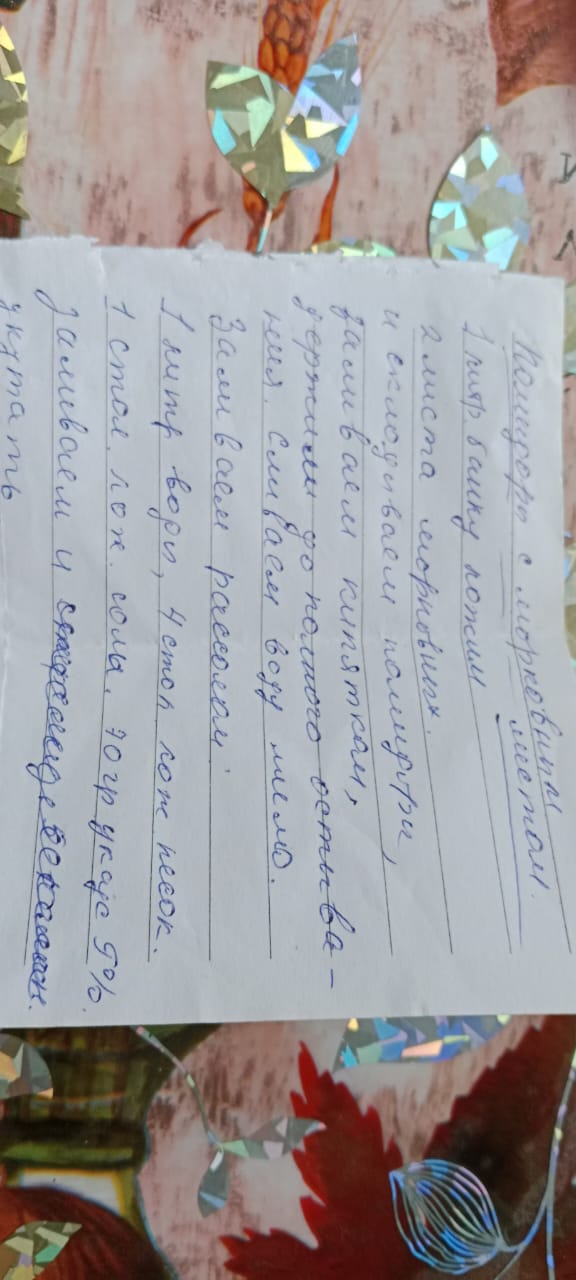 Помидоры с морковным
листом.
1 литр банку ложим
2 листа морковных.
и складываем помидоры,
заливаем кипятком,
держим до полного остыва-
ния. сливаем воду
Заливаем рассолом:
1 литр воды, 4 стол лож песок.
1 стол. лож. соли. 70 гр уксус 9%.
Заливаем и
укутать